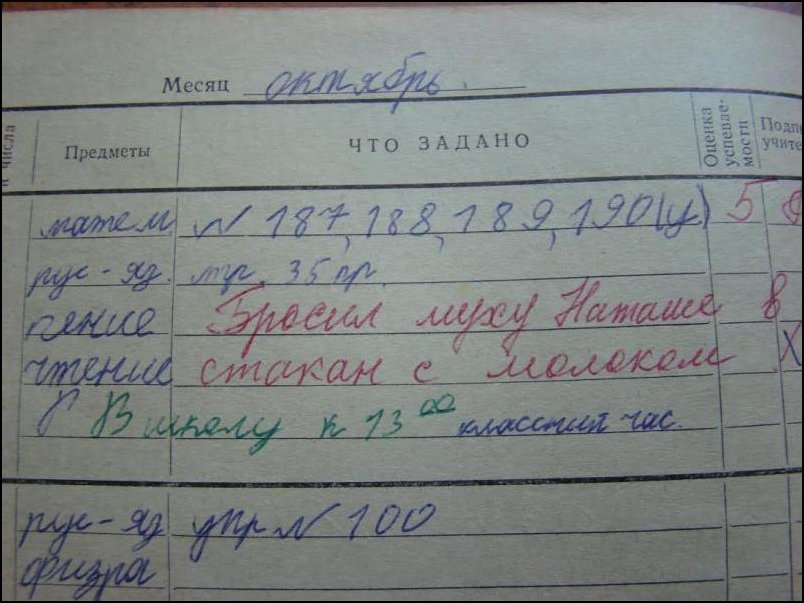 Месяц октябрь
числа Предметы ЧТО ЗАДАНО Оценка успевае- мости Подп учите
матем. N 187, 188, 189, 190(у) 5
рус-яз. стр. 35 пр.
пение Бросил муху Наташе в
чтение стакан с молоком
В школу к 13 00 классный час.
рус-яз упр N 100
физра